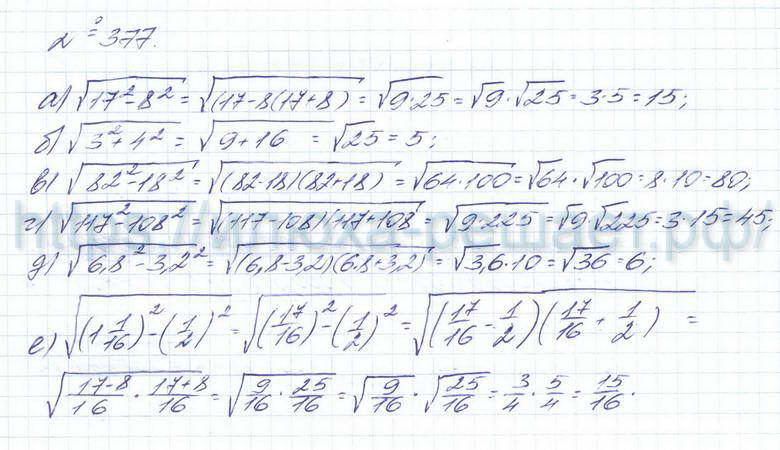 № 377.
а) √(17² - 8²) = √(17-8(17+8) = √9·25 = √9·√25 = 3·5 = 15;
б) √(3² + 4²) = √(9+16) = √25 = 5;
в) √(82² - 18²) = √(82-18)(82+18) = √64·100 = √64·√100 = 8·10 = 80;
г) √(117² - 108²) = √(117-108)(117+108 = √9·225 = √9·√225 = 3·15 = 45;
д) √(6,8² - 3,2²) = √(6,8-3,2)(6,8+3,2) = √3,6·10 = √36 = 6;
е) √((1 1/16)² - (1/2)²) = √((17/16)² - (1/2)²) = √(17/16 - 1/2)(17/16 + 1/2) =
√((17-8)/16 · (17+8)/16) = √(9/16 · 25/16) = √(9/16) · √(25/16) = 3/4 · 5/4 = 15/16.